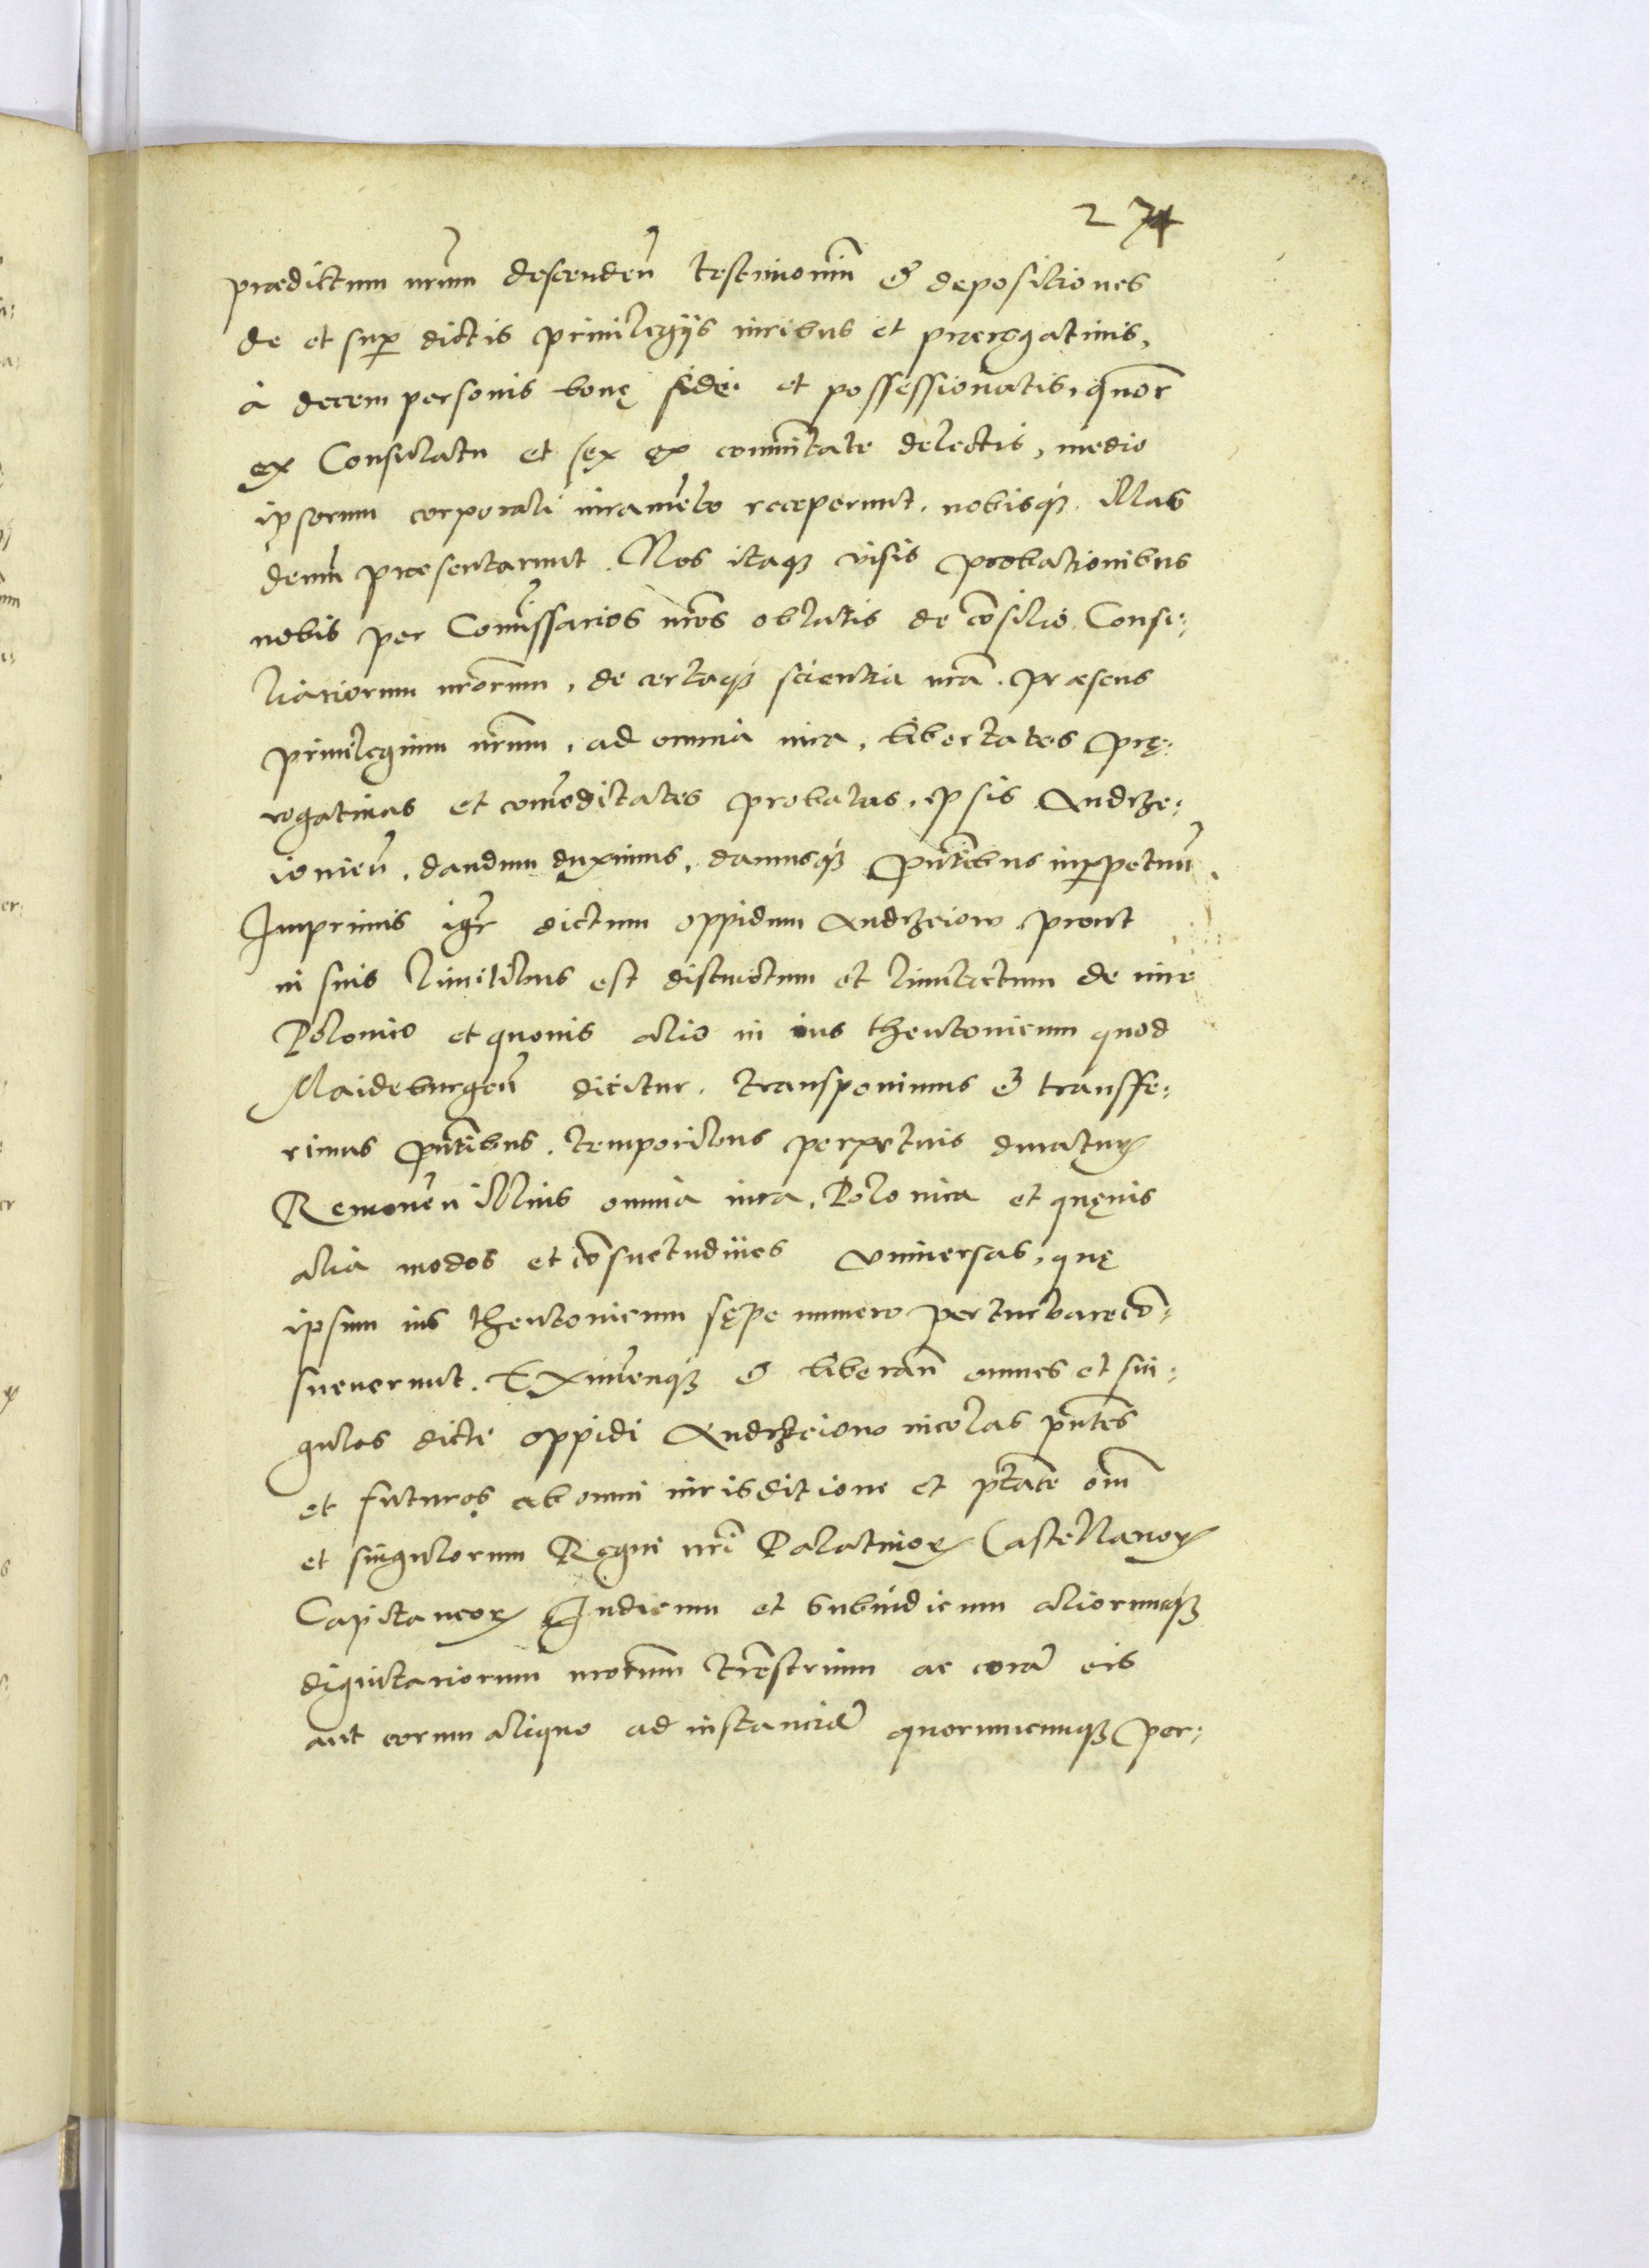 274
praedictum nrum descenden̄ testimoniū & depositiones
de et sup̱ dictis priuilegijs iuribus et praerogatiuis,
à decem personis bonę fidei et possessionatis, quor̄
ex Consulatu et sex ex com̄unitate delectis, medio
ipsorum corporali iuramēto receperunt, nobisqꝫ illas
demū praesentarunt. Nos itaqꝫ visis probationibus
nobis per Com̄issarios nr̄os oblatis de cōsilio Consi:
liariorum nrorum, de certaqꝫ scientia nrā. praesens
priuilegium nrum, ad omnia iura, libertates prę:
rogatiuas et com̄oditates probatas, ipsis Andrze:
iouien̄, dandum duximus, damusqꝫ pn̄tibus inp̱petuū.
Imprimis igr̄ dictum oppidum Andrzeiow prout
in suis limitibus est distinctum et limitatum de iure
Polonico et quouis alio in ius theutonicum quod
Maideburgen̄ dicitur, transponimus & transffe:
rimus pn̄tibus, temporibus perpetuis duaturꝝ
Remouen̄ illius omnia iura, Polonica et quęuis
alia modos et cōsuetudines vniuersas, quę
ipsum ius theutonicum sępe numero perturbare cō:
sueuerunt. Eximenqꝫ & liberan̄ omnes et sin:
gulos dicti oppidi Andrzeiow incolas pn̄tes
et futuros ab omni iurisditione et ptāte om̄
et singulorum Regni nri Palatinorꝝ Castellanorꝝ
Capitaneorꝝ Iudicum et Subiudicum aliorumqꝫ
dignitariorum nrorum trrēstrium ac corā eis
aut eorum aliquo ad instanciā quorumcumqꝫ per: